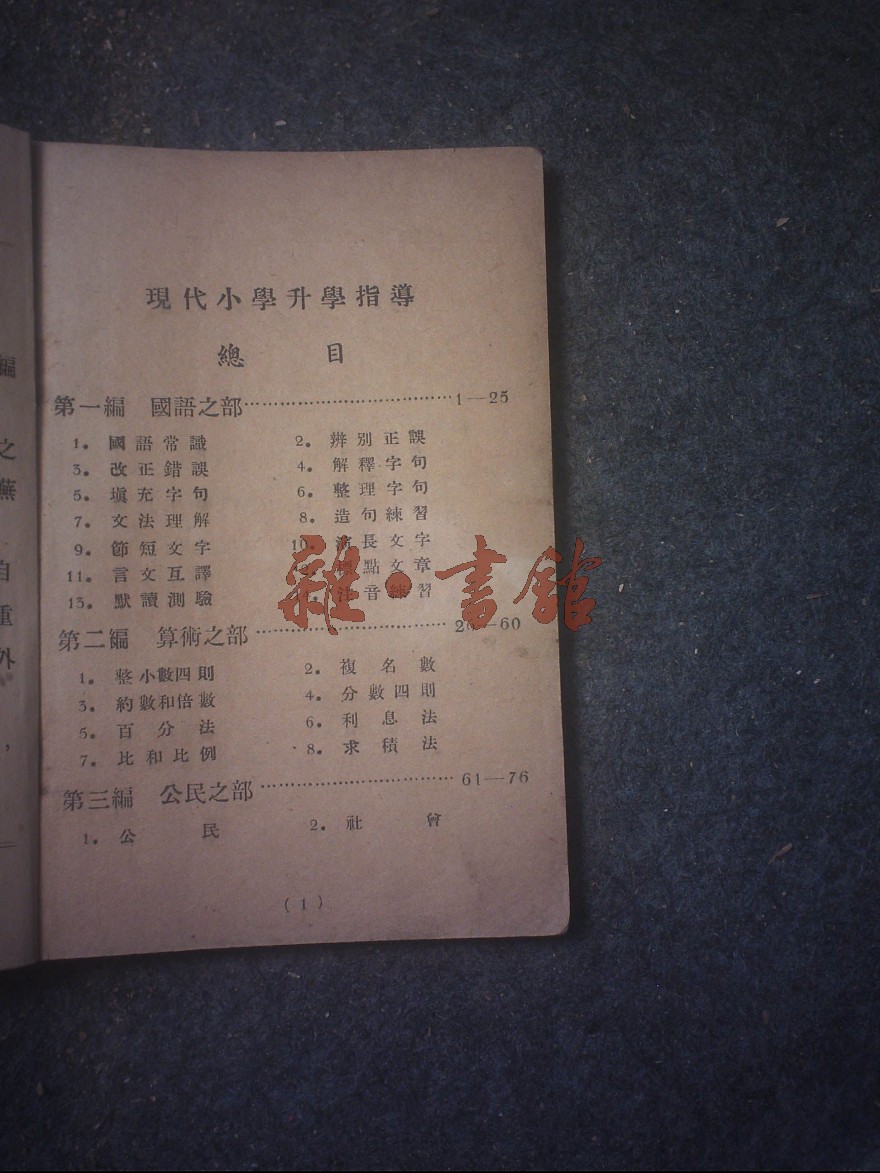 現代小學升學指導
總目
第一編 國語之部……………………………1—25
1. 國語常識 2. 辨別正誤
3. 改正錯誤 4. 解釋字句
5. 塡充字句 6. 整理字句
7. 文法理解 8. 造句練習
9. 節短文字 10. 演長文字
11. 言文互譯 12. 標點文章
13. 默讀測驗 14. 注音練習
第二編 算術之部……………………………26—60
1. 整小數四則 2. 複名數
3. 約數和倍數 4. 分數四則
5. 百分法 6. 利息法
7. 比和比例 8. 求積法
第三編 公民之部……………………………61—76
1. 公民 2. 社會
(1)
雜·書館
編
之
蕪
自
重
外
，